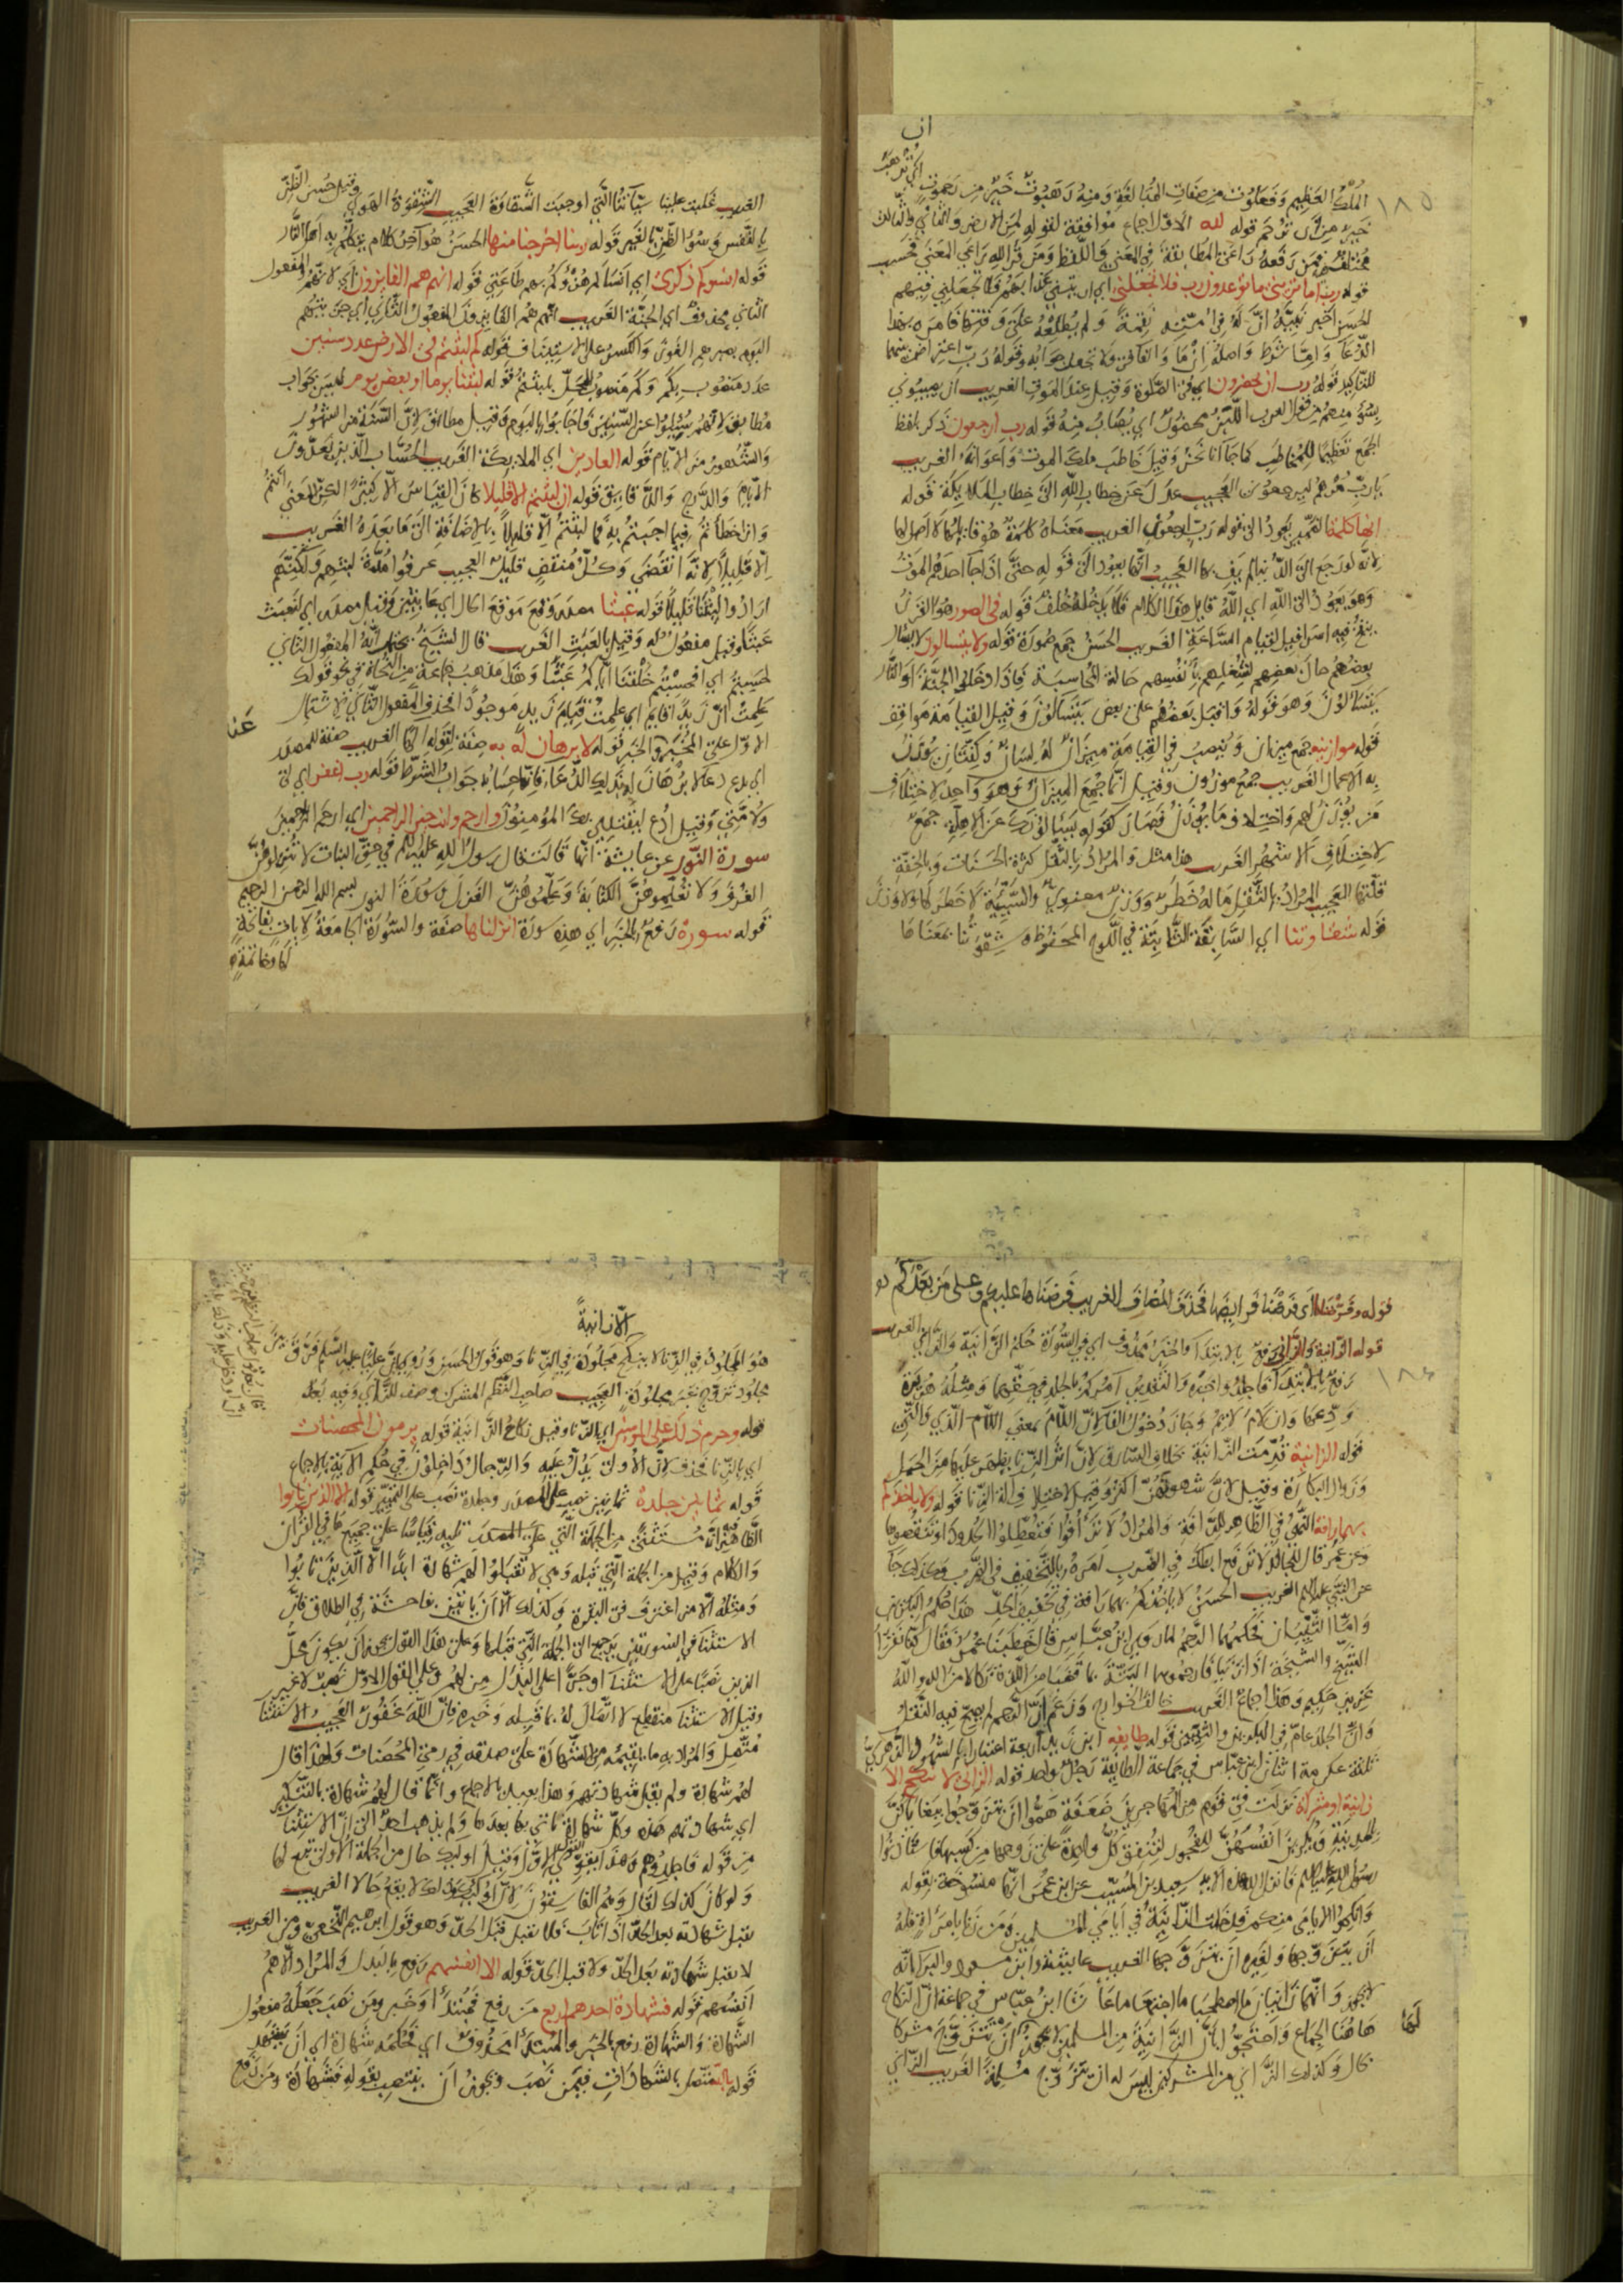 ان
اي ترهب
١٨٥
الملك العظيم وفعلوت من صفات المبالغة ومنه رهبوت خير من رحموت
خير من ان ترحم قوله لله الاول اجماع موافقة لقوله لمن الارض والثاني والثالث
مختلف فمن رفعه راعى المطابقة في المعنى واللفظ ومن قرا لله راعى المعنى فحسب
قوله رب اما تريني ما يوعدون رب فلا تجعلني اي ان تريني عذابهم فلا تجعلني فيهم
الحسن اخبر نبيه ان له في امته نقمة ولم يطلعه على وقتها فامره بهذا
الدعا واما شرط واصله ان ما والفا في فلا تجعلني جوابه وقوله رب اعتراض بينهما
للتاكيد قوله رب ان يحضرون اي في الصلوة وقيل عند الموت الغريب ان يصيبوني
بسوء منهم من قول العرب اللبن محضور اي يصاب منه قوله رب ارجعون ذكر بلفظ
الجمع تعظيما للمخاطب كما جا انا نحن وقيل خاطب ملك الموت واعوانه الغريب
يا رب مرهم ليرجعون العجيب عدل عن خطاب الله الى خطاب الملايكة قوله
انها كلمة الضمير يعود الى قوله رب ارجعون الغريب معناه كلمة هو قايلها لا اصل لها
لانه لو رجع الى الدنيا لم يف بها العجيب انها يعود الى قوله حتى اذا جا احدهم الموت
وهو يعود الى الله اي الله قايل هذا الكلام فلا يدخله خلف قوله في الصور هو القرن
ينفخ فيه اسرافيل لقيام الساعة الغريب الحسن جمع صورة قوله ولا يتسالون لا يسال
بعضهم حال بعضهم لشغلهم بانفسهم حالة المحاسبة فاذا دخلوا الجنة او النار
يتسالون وهو قوله واقبل بعضهم على بعض يتسالون وقيل القيامة مواقف
قوله موازينه جمع ميزان وينصب في القيامة ميزان له لسان وكفتان يوزن
به الاعمال الغريب جمع موزون وقيل انما جمع الميزان وهو واحد لاختلاف
من يوزن لهم واختلاف ما يوزن فصار كقوله يسالونك عن الاهلة جمع
لاختلاف الاشهر الغريب هذا مثل والمراد بالثقل كثرة الحسنات وبالخفة
قلتها العجيب المراد بالثقل ماله خطر ووزن معنوي والسيية لا خطر لها ولا وزن
قوله شقاوتنا اي السابقة الثابتة في اللوح المحفوظ و شقوتنا بمعناها
الغريب غلبت علينا سيآتنا التي اوجبت الشقاوة العجيب الشقوة الهوى وقيل حسن الظن
بالنفس وسوء الظن بالغير قوله ربنا اخرجنا منها الحسن هو آخر كلام يتكلم به اهل النار
قوله انسوكم ذكري اي انساكم هزوكم بهم طاعتي قوله انهم هم الفايزون اي لانهم المفعول
الثاني محذوف اي الجنة الغريب انهم هم الفايزون المفعول الثاني اي جزيتهم
اليوم بصبرهم الفوز والكسر على الاستيناف قوله كم لبثتم في الارض عدد سنين
عدد منصوب بكم وكم منصوب المحل بلبثتم قوله لبثنا يوما او بعض يوم ليس بجواب
مطابق لانهم سئلوا عن السنين فاجابوا باليوم وقيل مطابق لان السنة من الشهور
والشهور من الايام قوله العادين اي الملايكة الغريب الحساب الذين يعدون
الايام والدرج والدقايق قوله ان لبثتم الا قليلا كان القياس الا كثيرا لكن المعنى انتم
وان اخطأتم فيما اجبتم به فما لبثتم الا قليلا بالاضافة الى ما بعده الغريب
الا قليلا لانه انقضى وكل منقض قليل العجيب عرفوا مدة لبثهم ولكنهم
ارادوا لبثنا قليلا قوله عبثا مصدر وقع موقع الحال اي عابثين وقيل مصدر اي نعبث
عبثا وقيل مفعول له وقيل بالعبث الغريب قال الشيخ يحتمل انه المفعول الثاني
لحسبتم اي افحسبتم خلقنا اياكم عبثا وهذا مذهب جماعة من النحاة في نحو قولك
علمت ان زيدا قايم اي علمت قيام زيد موجودا فحذف المفعول الثاني لاشتمال
الاول على المخبر والخبر قوله لا برهان له به صفة لقوله الها الغريب صفة للمصدر
اي يدع دعا لا برهان له بذلك الدعا فانما حسابه جواب الشرط قوله رب اغفر اي لي
ولامتي وقيل ادع ليقتدي بك المؤمنون وارحم وانت خير الراحمين اي ارحم الراحمين
سورة النور عن عايشة انها قالت قال رسول الله عليه السلم في حق البنات لا تنزلوهن
الغرف ولا تعلموهن الكتابة وعلموهن الغزل وسورة النور بسم الله الرحمن الرحيم
قوله سورة رفع بالخبر اي هذه سورة انزلناها صفة والسورة الجامعة لايات بفاتحة
لها وخاتمة
قوله وفرضناها اي فرضنا فرايضها فحذف المضاف الغريب فرضناها عليكم وعلى من بعدكم
قوله الزانية والزاني رفع بالابتدا والخبر محذوف اي في السورة حكم الزانية والزاني الغريب
١٨٦
رفع بالابتدا فاجلدوا خبره والتقدير امركم بالجلد في حقهما ومثله هريرة
ودعها وان لام لايم وجاز دخول الفا لان اللام بمعنى اللام الذي والتي
قوله الزانية قدمت الزانية بخلاف السارق لان اثر الزنا يظهر عليها من الحبل
وزوال البكارة وقيل لان شهوتهن اكثر وقيل لاختلاف الة الزنا قوله ولا ياخذكم
بهما رافة النهي في الظاهر للرافة والمراد لا ترأفوا فتعطلوا الحدود او تنقصوها
وعن عمر قال للجالد لا ترفع ابطك في الضرب امره بالتخفيف في الضرب وكذلك جا
عن النبي عليه السلم الغريب الحسن لا ياخذكم بهما رافة في تخفيف الحد هذا حكم البكرين
واما الثيبان فحكمهما الرجم لما روي ابن عباس قال خطبنا عمر فقال كنا نقرا
الشيخ والشيخة اذا زنيا فارجموهما البتة بما قضيا من اللذة نكالا من الله والله
عزيز حكيم وهذا اجماع الغريب خالف الخوارج وزعم ان الرجم لم يصح فيه النقل
وان الجلد عام في البكرين والثيبين قوله طايفة ابن زيد اربعة اعتبارا بالشهود الزهري
ثلثة عكرمة اثنان ابن عباس في جماعة الطايفة رجل واحد قوله الزاني لا ينكح الا
زانية او مشركة نزلت في قوم من المهاجرين ضعفة هموا ان يتزوجوا بغايا كن
بالمدينة ويكرين انفسهن للفجور لتنفق كل واحدة على زوجها من كسبها فاستاذنوا
رسول الله عليه السلم فانزل الله هذه الاية سعيد بن المسيب عن ابن عمر انها منسوخة بقوله
وانكحوا الايامى منكم فدخلت الزانية في ايامى المسلمين ومن زنا بامرأة فله
ان يتزوجها ولغيره ان يتزوجها الغريب عايشة وابن مسعود والبرا انه
لا يجوز وانهما زانيان ما اصطحبا ما اجتمعا ماعاشا ابن عباس في جماعة ان النكاح
هاهنا الجماع واحتج بان الزانية من المسلمين لا يجوز لها ان تتزوج مشركا
بحال وكذلك الزاني من المشركين ليس له ان يتزوج مسلمة الغريب الزاني
الا زانية
هو المجلود في الزنا لا ينكح الا مجلودة في الزنا وهو قول الحسن وروي ان عليا عليه السلم فرق بين
مجلود تزوج بغير مجلودة العجيب صاحب النظم المشرك وصف للزاني وفيه بعد
قوله وحرم ذلك على المومنين اي الزنا وقيل نكاح الزانية قوله يرمون المحصنات
اي بالزنا فحذف لان الاولى يدل عليه والرجال داخلون في حكم الاية بالاجماع
قوله ثمانين جلدة ثمانين نصب على المصدر وجلدة نصب على التمييز قوله الا الذين تابوا
الظاهر انه مستثنى من الجملة التي تليه قياسا على جميع ما في القران
والكلام وقيل من الجملة التي قبله وهي لا تقبلوا لهم شهادة ابدا الا الذين تابوا
ومثله الا من اغترف في البقرة وكذلك الا ان ياتين بفاحشة في الطلاق فان
الاستثنا في السورتين يرجع الى الجملة التي قبلها وعلى هذا القول يجوز ان يكون محل
الذين نصبا على الاستثنا او جرا على البدل من لهم وعلى القول الاول نصب لا غير
وقيل الاستثنا منقطع لا اتصال له بما قبله وخبره فان الله غفور العجيب الاستثنا
متصل والمراد به ما يقيمه من الشهادة على صدقه في رمي المحصنات ولهذا قال
لهم شهادة ولم يقل شهادتهم وهذا بعيد بالاجماع وانما قال لهم شهادة بالتنكير
اي شهادتهم هذه وكل شهادة تاتي بها بعدها ولم يذهب احد الى ان الاستثنا
من قوله فاجلدوهم وهذا يقوي القول الاول وقيل اوليك حال من الجملة الاولى تبع لها
ولو كان كذلك لقال وهم الفاسقون لان اوليك لا يقع حالا الغريب
يقبل شهادته بعد الحد اذا تاب فلا يقبل قبل الحد وهو قول ابرهيم النخعي ومن الغريب
لا يقبل شهادته بعد الحد ولا قبل الحد قوله الا انفسهم رفع بالبدل والمراد الا هم
انفسهم قوله فشهادة احدهم اربع من رفع فمبتدأ وخبر ومن نصب جعله مفعول
الشهادة والشهادة رفع بالخبر والمبتدأ محذوف اي فحكمه شهادة اي ان يشهد
قوله بالله متصل بالشهادات فيمن نصب ويجوز ان ينتصب بقوله فشهادة ومن رفع